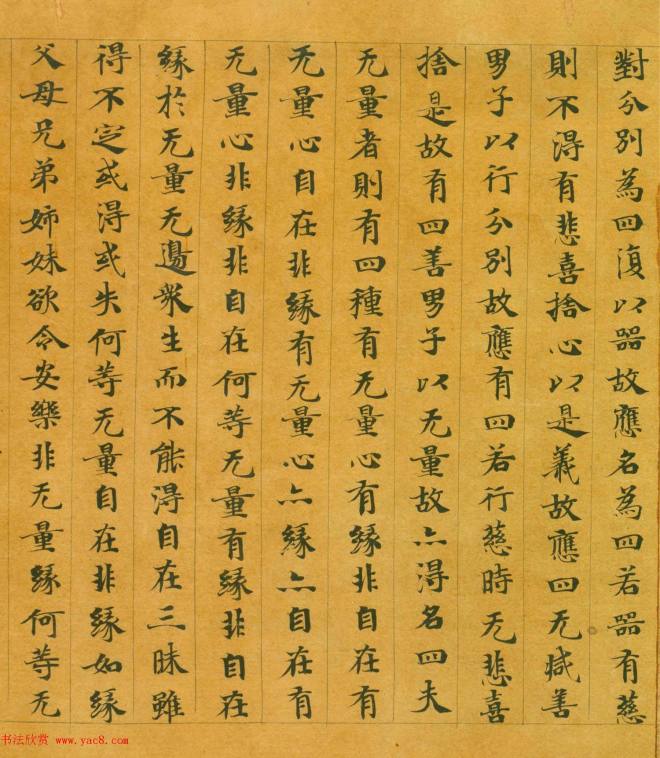 對分別為四復以器故應名為四若器有慈
則不得有悲喜捨心以是義故應四无减善
男子以行分別故應有四若行慈時无悲喜
捨是故有四善男子以无量故亦得名四夫
无量者則有四種有无量心有緣非自在有
无量心自在非緣有无量心亦緣亦自在有
无量心非緣非自在何等无量有緣非自在
緣於无量无邊眾生而不能得自在三昧雖
得不定或得或失何等无量自在非緣如緣
父母兄弟姊妹欲令安樂非无量緣何等无
书法欣赏 www.yac8.com